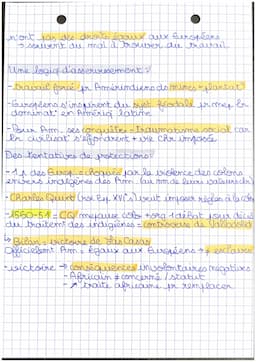 n'ont pas des droits égaux aux Européens
→ souvent du mal à trouver du travail
Une logique d'asservissement :
- travail forcé pr Amérindiens ds mines + plantat°
- Européens s'inspirent du syst. féodal pr mep la
dominat° en Amériq latine
- Pour Am. ses conquêtes = traumatisme social car
la civilisat° s'effondrent + rel. Chr. imposée
Des tentatives de protections :
- 1 p des Europ. choqués par la violence des colons
envers indigènes des Am. (au nm de leurs valeurs chr)
- Charles Quint (roi Esp. XVIe s) veut imposer règles à la colo
- 1550-51 → CQ colo + org 1 débat pour
du traitemt des indigènes = controverse de Valladolid
↳ Bilan = victoire de Las Casas
Officielemt Am = égaux aux Européens → ≠ esclave
- victoire → conséquences involontaires négatives
- Africain ≠ concerné / statut
- ↗ traite africaine pr remplacer